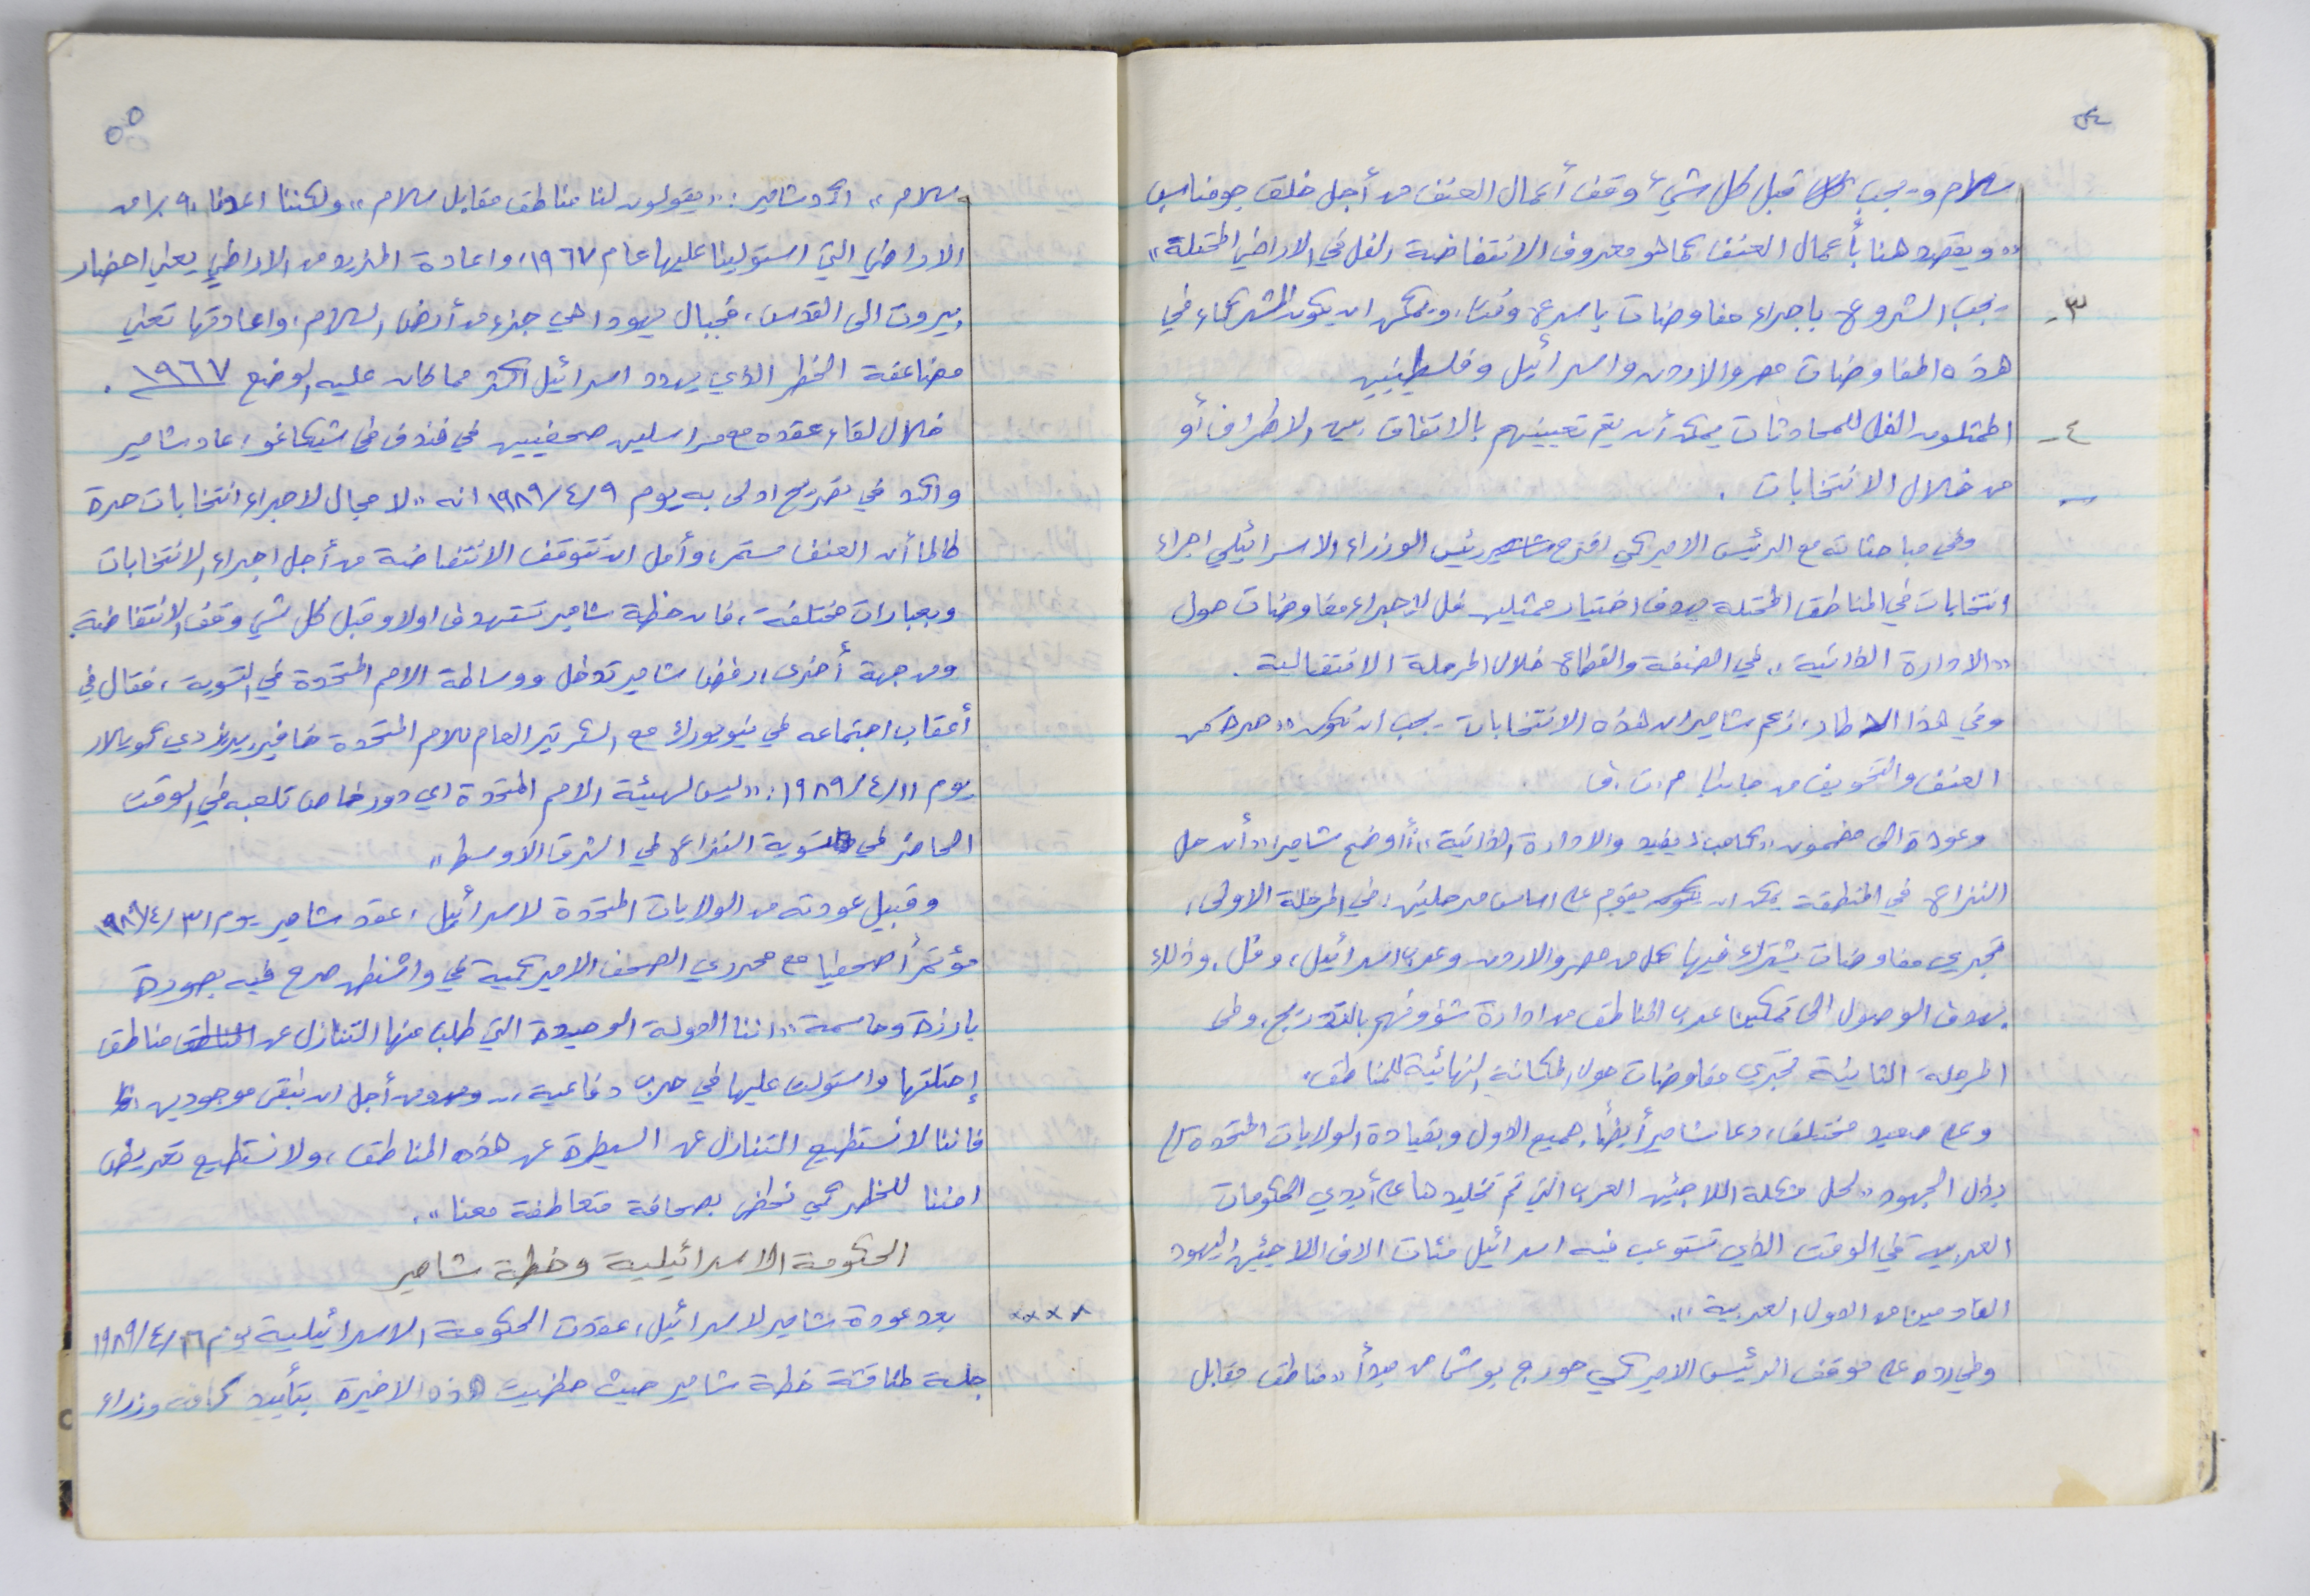 ٥٤
سلام ويجب قبل كل شيء وقف أعمال العنف من أجل خلق جو مناسب
"ويقصد هنا بأعمال العنف كما هو معروف الانتفاضة الفل في الاراضي المحتلة"
٣- يجب الشروع باجراء مفاوضات باسرع وقت، ويمكن ان يكون المشتركاء في
هذه المفاوضات مصر والاردن واسرائيل وفلسطينيين
٤- الممثلون الفل للمحادثات يمكن أن يتم تعيينهم بالاتفاق بين الاطراف أو
من خلال الانتخابات .
وفي مباحثاته مع الرئيس الامريكي اقترح شامير رئيس الوزراء الاسرائيلي اجراء
انتخابات في المناطق المحتلة بهدف اختيار ممثلين فل لاجراء مفاوضات حول
"الادارة الذاتية" في الضفة والقطاع خلال المرحلة الانتقالية .
وفي هذا الاطار، زعم شامير ان هذه الانتخابات يجب ان تكون "حرة من
العنف والتخويف من جانب م.ت.ف
وعودة الى مضمون "كامب ديفيد والادارة الذاتية" أوضح شامير "أن حل
النزاع في المنطقة يمكن ان يقوم على اساس مرحلتين، في المرحلة الاولى،
تجري مفاوضات يشترك فيها كل من مصر والاردن وعرب اسرائيل، وفل، وذلك
بهدف الوصول الى تمكين عرب المناطق من ادارة شؤونهم بالتدريج، وفي
المرحلة الثانية تجري مفاوضات حول المكانة النهائية للمناطق".
وعلى صعيد مختلف، دعا شامير أيضاً جميع الدول وبقيادة الولايات المتحدة الى
بذل الجهود "لحل مشكلة اللاجئين العرب التي تم تخليدها على أيدي الحكومات
العربية في الوقت الذي تستوعب فيه اسرائيل مئات الاف اللاجئين اليهود
القادمين من الدول العربية".
وفي رده على موقف الرئيس الامريكي جورج بوش من مبدأ "مناطق مقابل
٥٥
سلام" اكد شامير: "يقولون لنا مناطق مقابل سلام" ولكننا اعدنا ٩٠٪ من
الاراضي التي استولينا عليها عام ١٩٦٧، واعادة المزيد من الاراضي يعني احضار
بيروت الى القدس، فجبال يهودا هي جزء من أرض السلام، واعادتها تعني
مضاعفة الخطر الذي يهدد اسرائيل اكثر مما كان عليه الوضع ١٩٦٧ .
خلال لقاء عقده مع مراسلين صحفيين في فندق في شيكاغو، عاد شامير
واكد في تصريح ادلى به يوم ١٩٨٩/٤/٩ انه "لا مجال لاجراء انتخابات حرة
طالما أن العنف مستمر، وأمل ان تتوقف الانتفاضة من أجل اجراء الانتخابات
وبعبارات مختلفة، فان خطة شامير تستهدف اولا وقبل كل شيء وقف الانتفاضة.
ومن جهة أخرى، رفض شامير تدخل ووساطة الامم المتحدة في التسوية، فقال في
أعقاب اجتماعه في نيويورك مع السكرتير العام للامم المتحدة خافيير بيريز دي كويالار
يوم ١٩٨٩/٤/١١: "ليس لهيئة الامم المتحدة اي دور خاص تلعبه في الوقت
الحاضر في تسوية النزاع في الشرق الأوسط"
وقبيل عودته من الولايات المتحدة لاسرائيل، عقد شامير يوم ١٩٨٩/٤/١٣
مؤتمراً صحفيا مع محرري الصحف الامريكية في واشنطن صرح فيه بصورة
بارزة وحاسمة "اننا الدولة الوحيدة التي طلب منها التنازل عن المناطق مناطق
إحتلتها واستولت عليها في حرب دفاعية .. ومن أجل ان نبقى موجودين
فاننا لا نستطيع التنازل عن السيطرة عن هذه المناطق، ولا نستطيع تعريض
امننا للخطر كي نحظى بصحافة متعاطفة معنا".
الحكومة الاسرائيلية وخطة شامير
×××× بعد عودة شامير لاسرائيل، عقدت الحكومة الاسرائيلية يوم ١٩٨٩/٤/١٦
جلسة لمناقشة خطة شامير حيث حظيت هذه الاخيرة بتأييد كافة وزراء